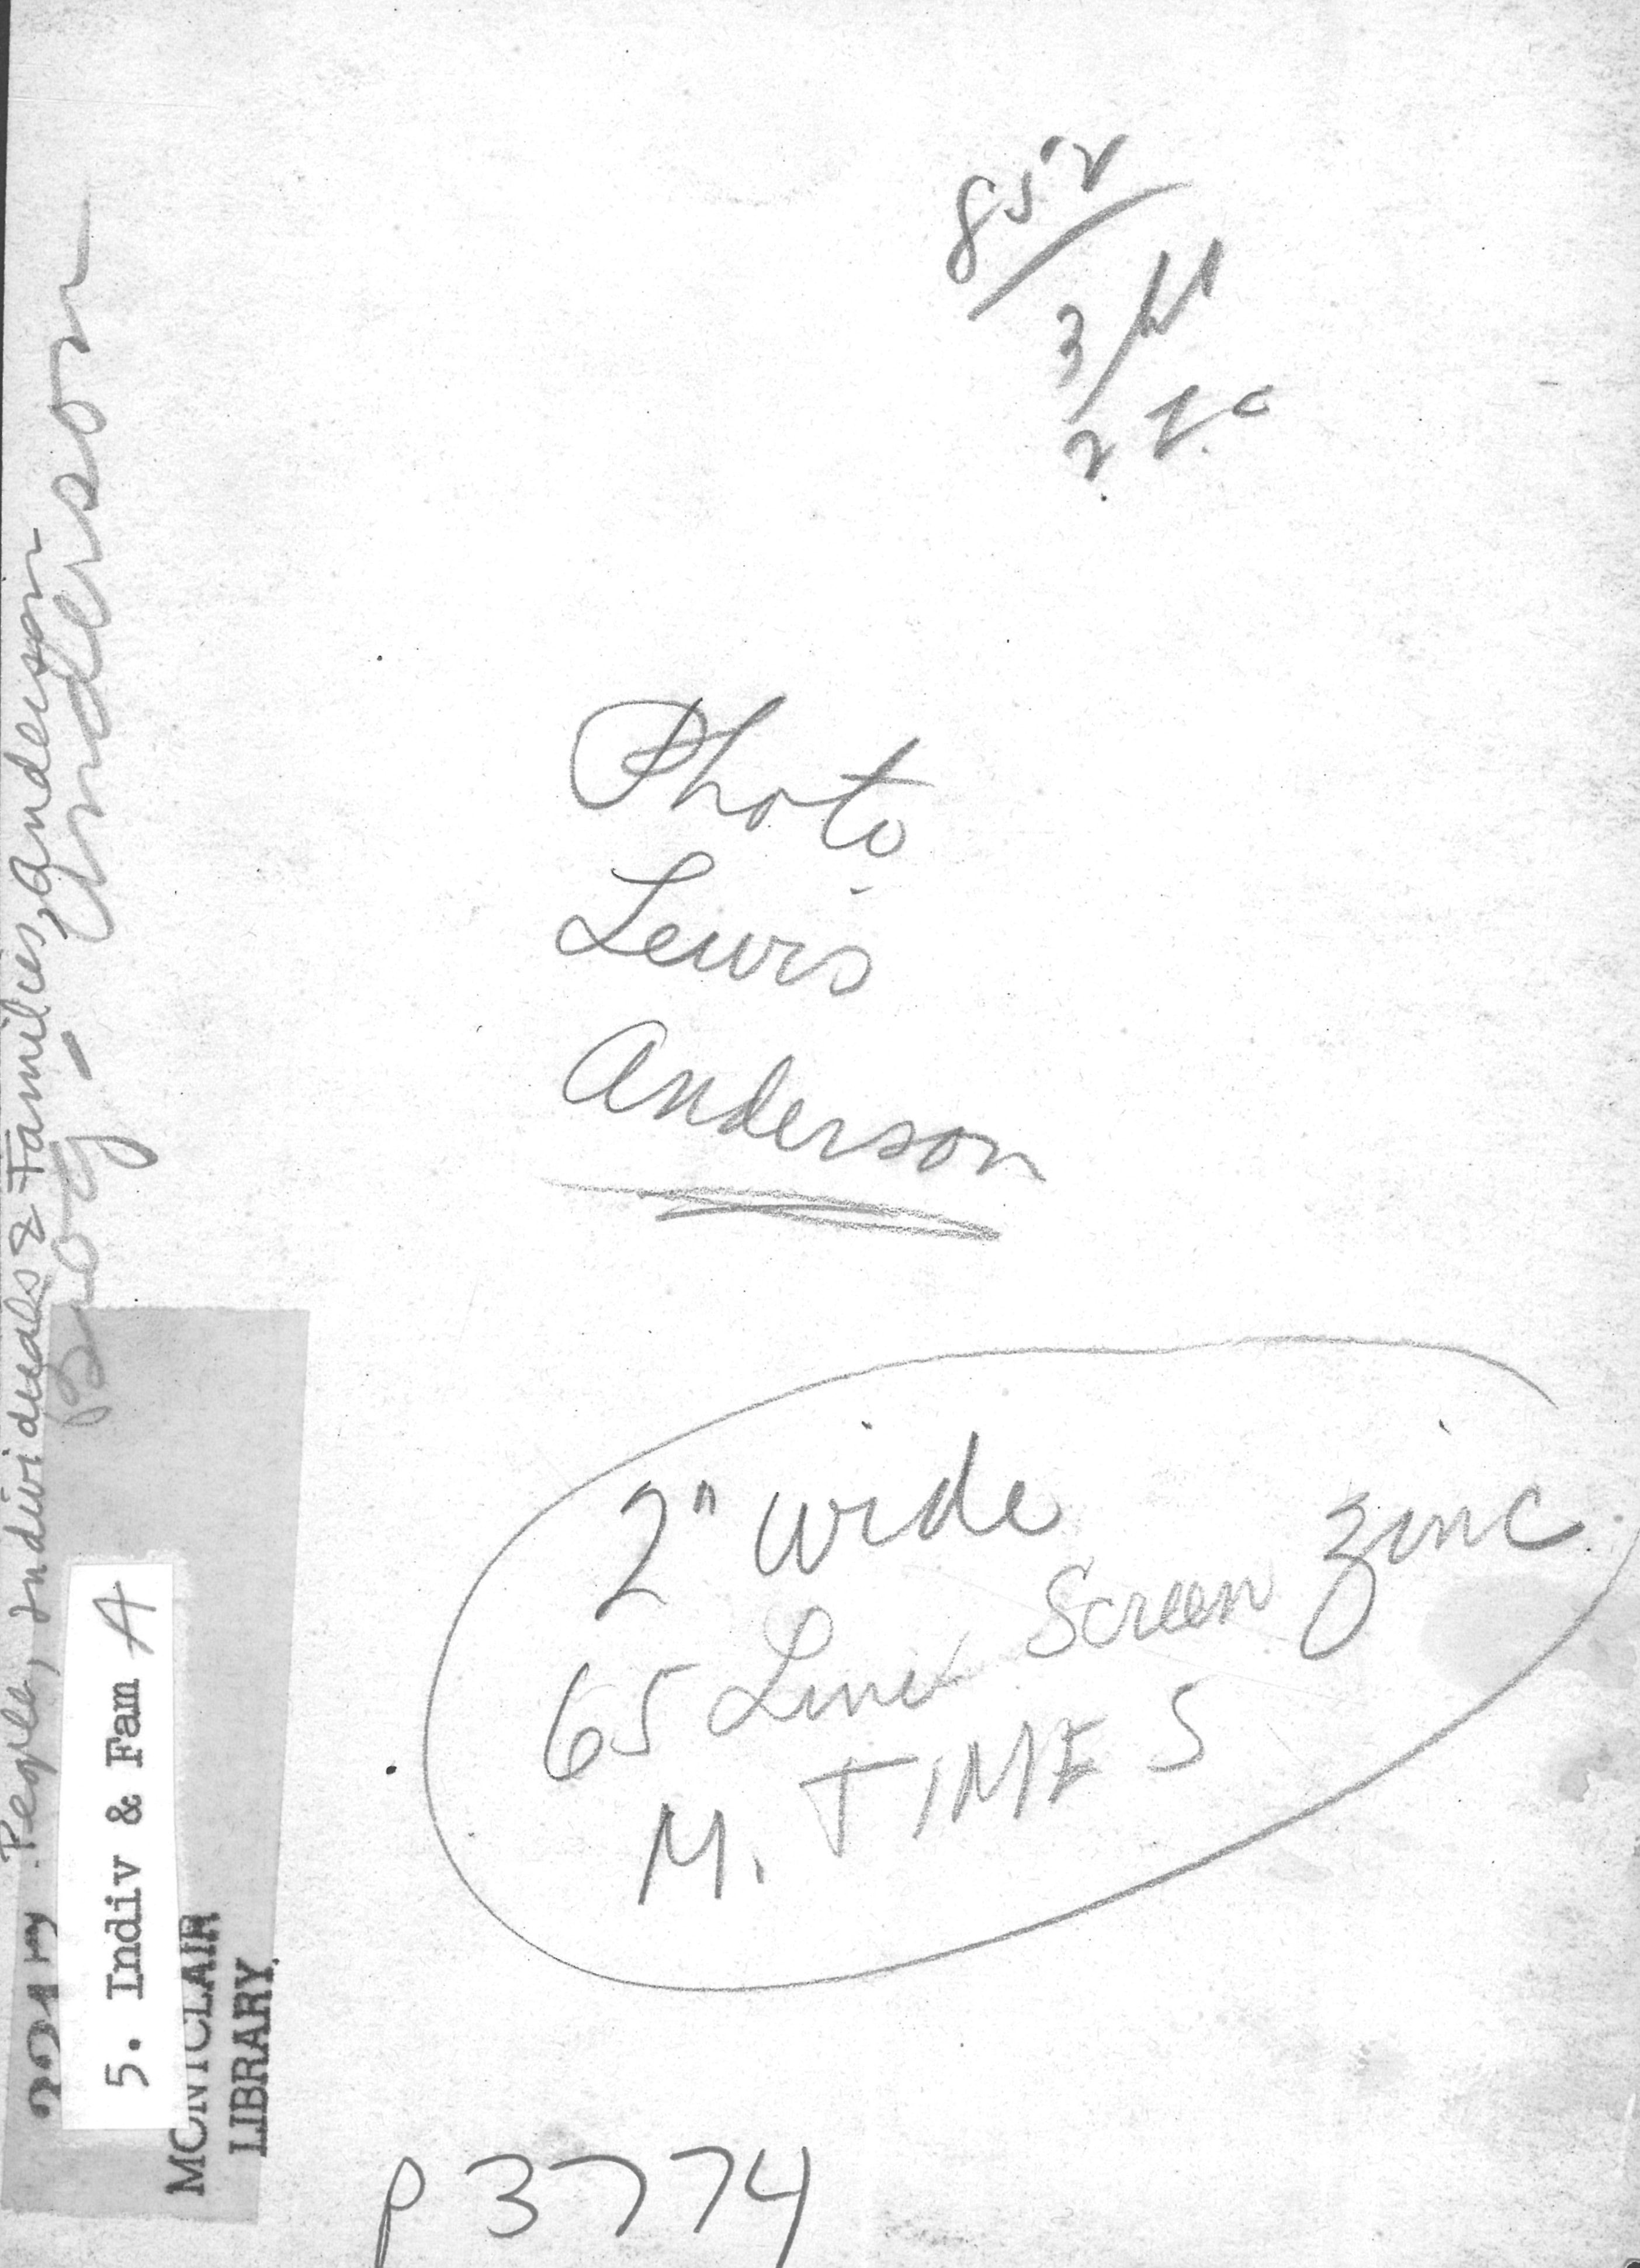 852
3/
2
Photo
Lewis
Anderson
2" wide
65 Line Screen zinc
M. TIMES
p 3774
People, Individuals & Families, Anderson
Biog. - Anderson
5. Indiv & Fam A
MONTCLAIR
LIBRARY